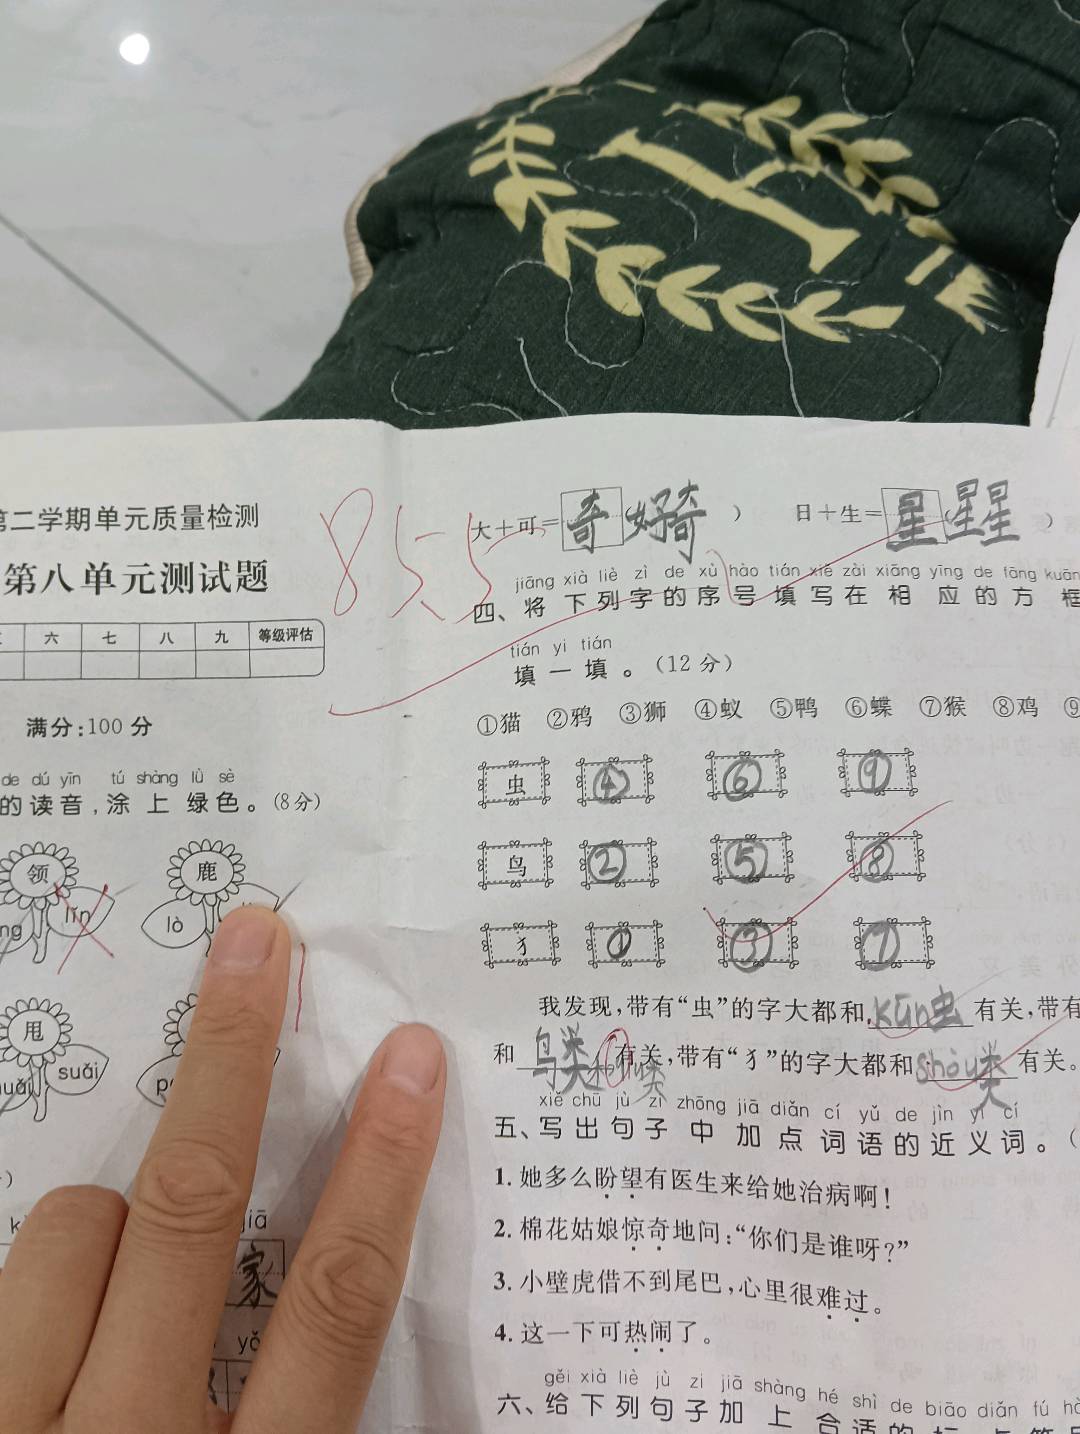 第二学期单元质量检测
第八单元测试题
六 七 八 九 等级评估
满分:100 分
de dú yīn tú shàng lǜ sè
的读音,涂上绿色。(8分)
领 鹿
lǐn lò
甩
suǎi
jiā
家
85.5
大+可= 奇 (好奇) 日+生= 星 (星星)
jiāng xià liè zì de xù hào tián xiě zài xiāng yīng de fāng kuàn
四、将下列字的序号填写在相应的方框
tián yi tián
填一填。(12分)
①猫 ②鸦 ③狮 ④蚁 ⑤鸭 ⑥蝶 ⑦猴 ⑧鸡 ⑨
虫 ④ ⑥ ⑨
鸟 ② ⑤ ⑧
犭 ① ③ ⑦
我发现,带有“虫”的字大都和 kūn虫 有关,带有
和 鸟类 有关,带有“犭”的字大都和 shòu类 有关。
xiě chū jù zi zhōng jiā diǎn cí yǔ de jìn yì cí
五、写出句子中加点词语的近义词。(
1. 她多么盼望有医生来给她治病啊!
2. 棉花姑娘惊奇地问:“你们是谁呀?”
3. 小壁虎借不到尾巴,心里很难过。
4. 这一下可热闹了。
gěi xià liè jù zi jiā shàng hé shì de biāo diǎn fú hà
六、给下列句子加上合适的标点符